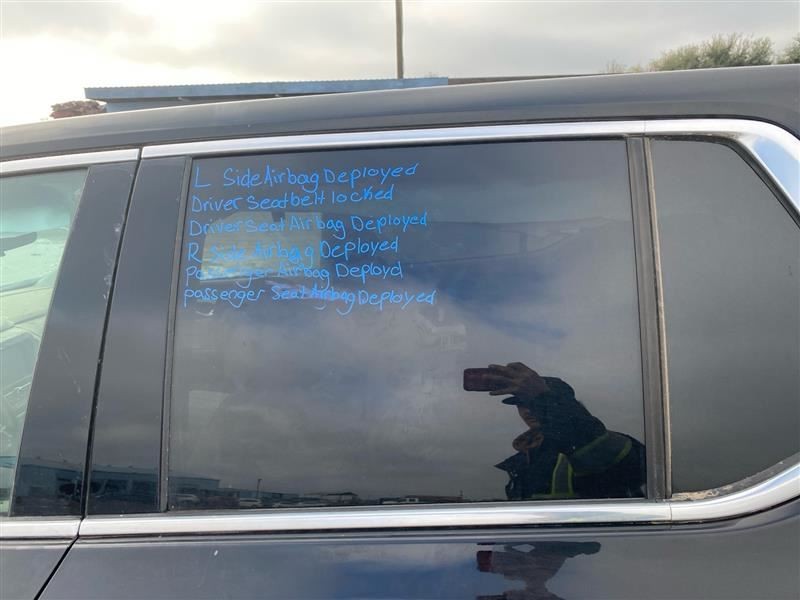 L Side Airbag Deployed
Driver Seatbelt locked
Driver Seat Airbag Deployed
R Side Airbag Deployed
Passenger Airbag Deployd
passenger Seat Airbag Deployed